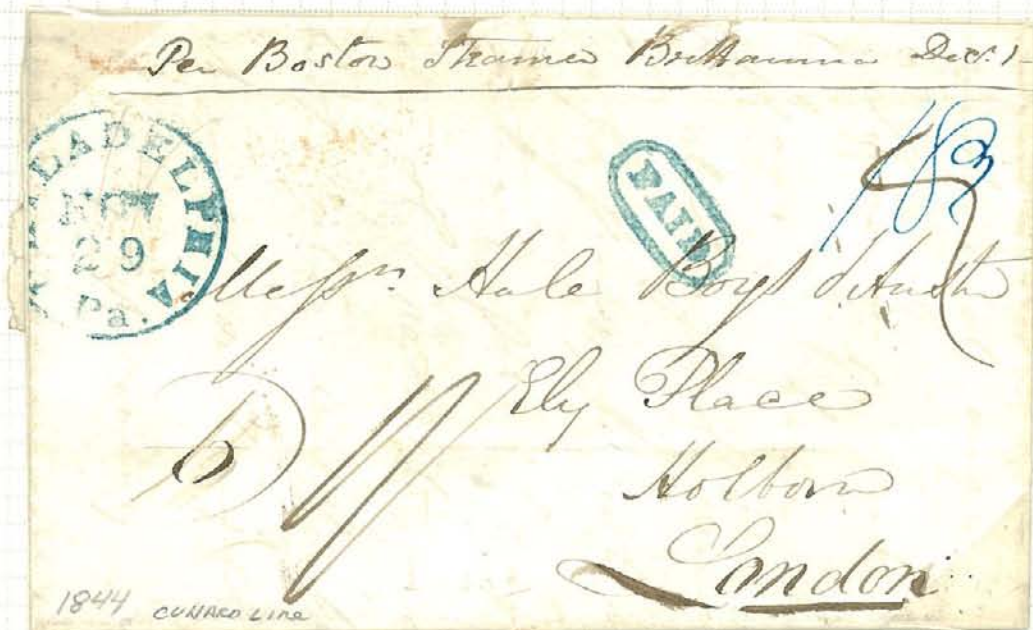 Per Boston Steamer Brittannia Dec. 1
PHILADELPHIA
NOV
29
Pa.
PAID
18¾
Messrs. Hale Boys & Austen
Ely Place
Holborn
London
1844 CUNARD LINE